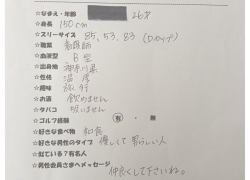 ☆なまえ・年齢 26才
☆身長 150cm
☆スリーサイズ 85, 53, 83 (Dカップ)
☆職業 看護師
☆血液型 B型
☆出身地 神奈川県
☆性格 温厚
☆趣味 旅行
☆お酒 飲めません
☆タバコ 吸いません
☆ゴルフ経験 有・無
☆好きな食べ物 和食
☆好きな男性のタイプ 優しくて男らしい人
☆似ている？有名人
☆男性会員さまへメッセージ
仲良くして下さいね。